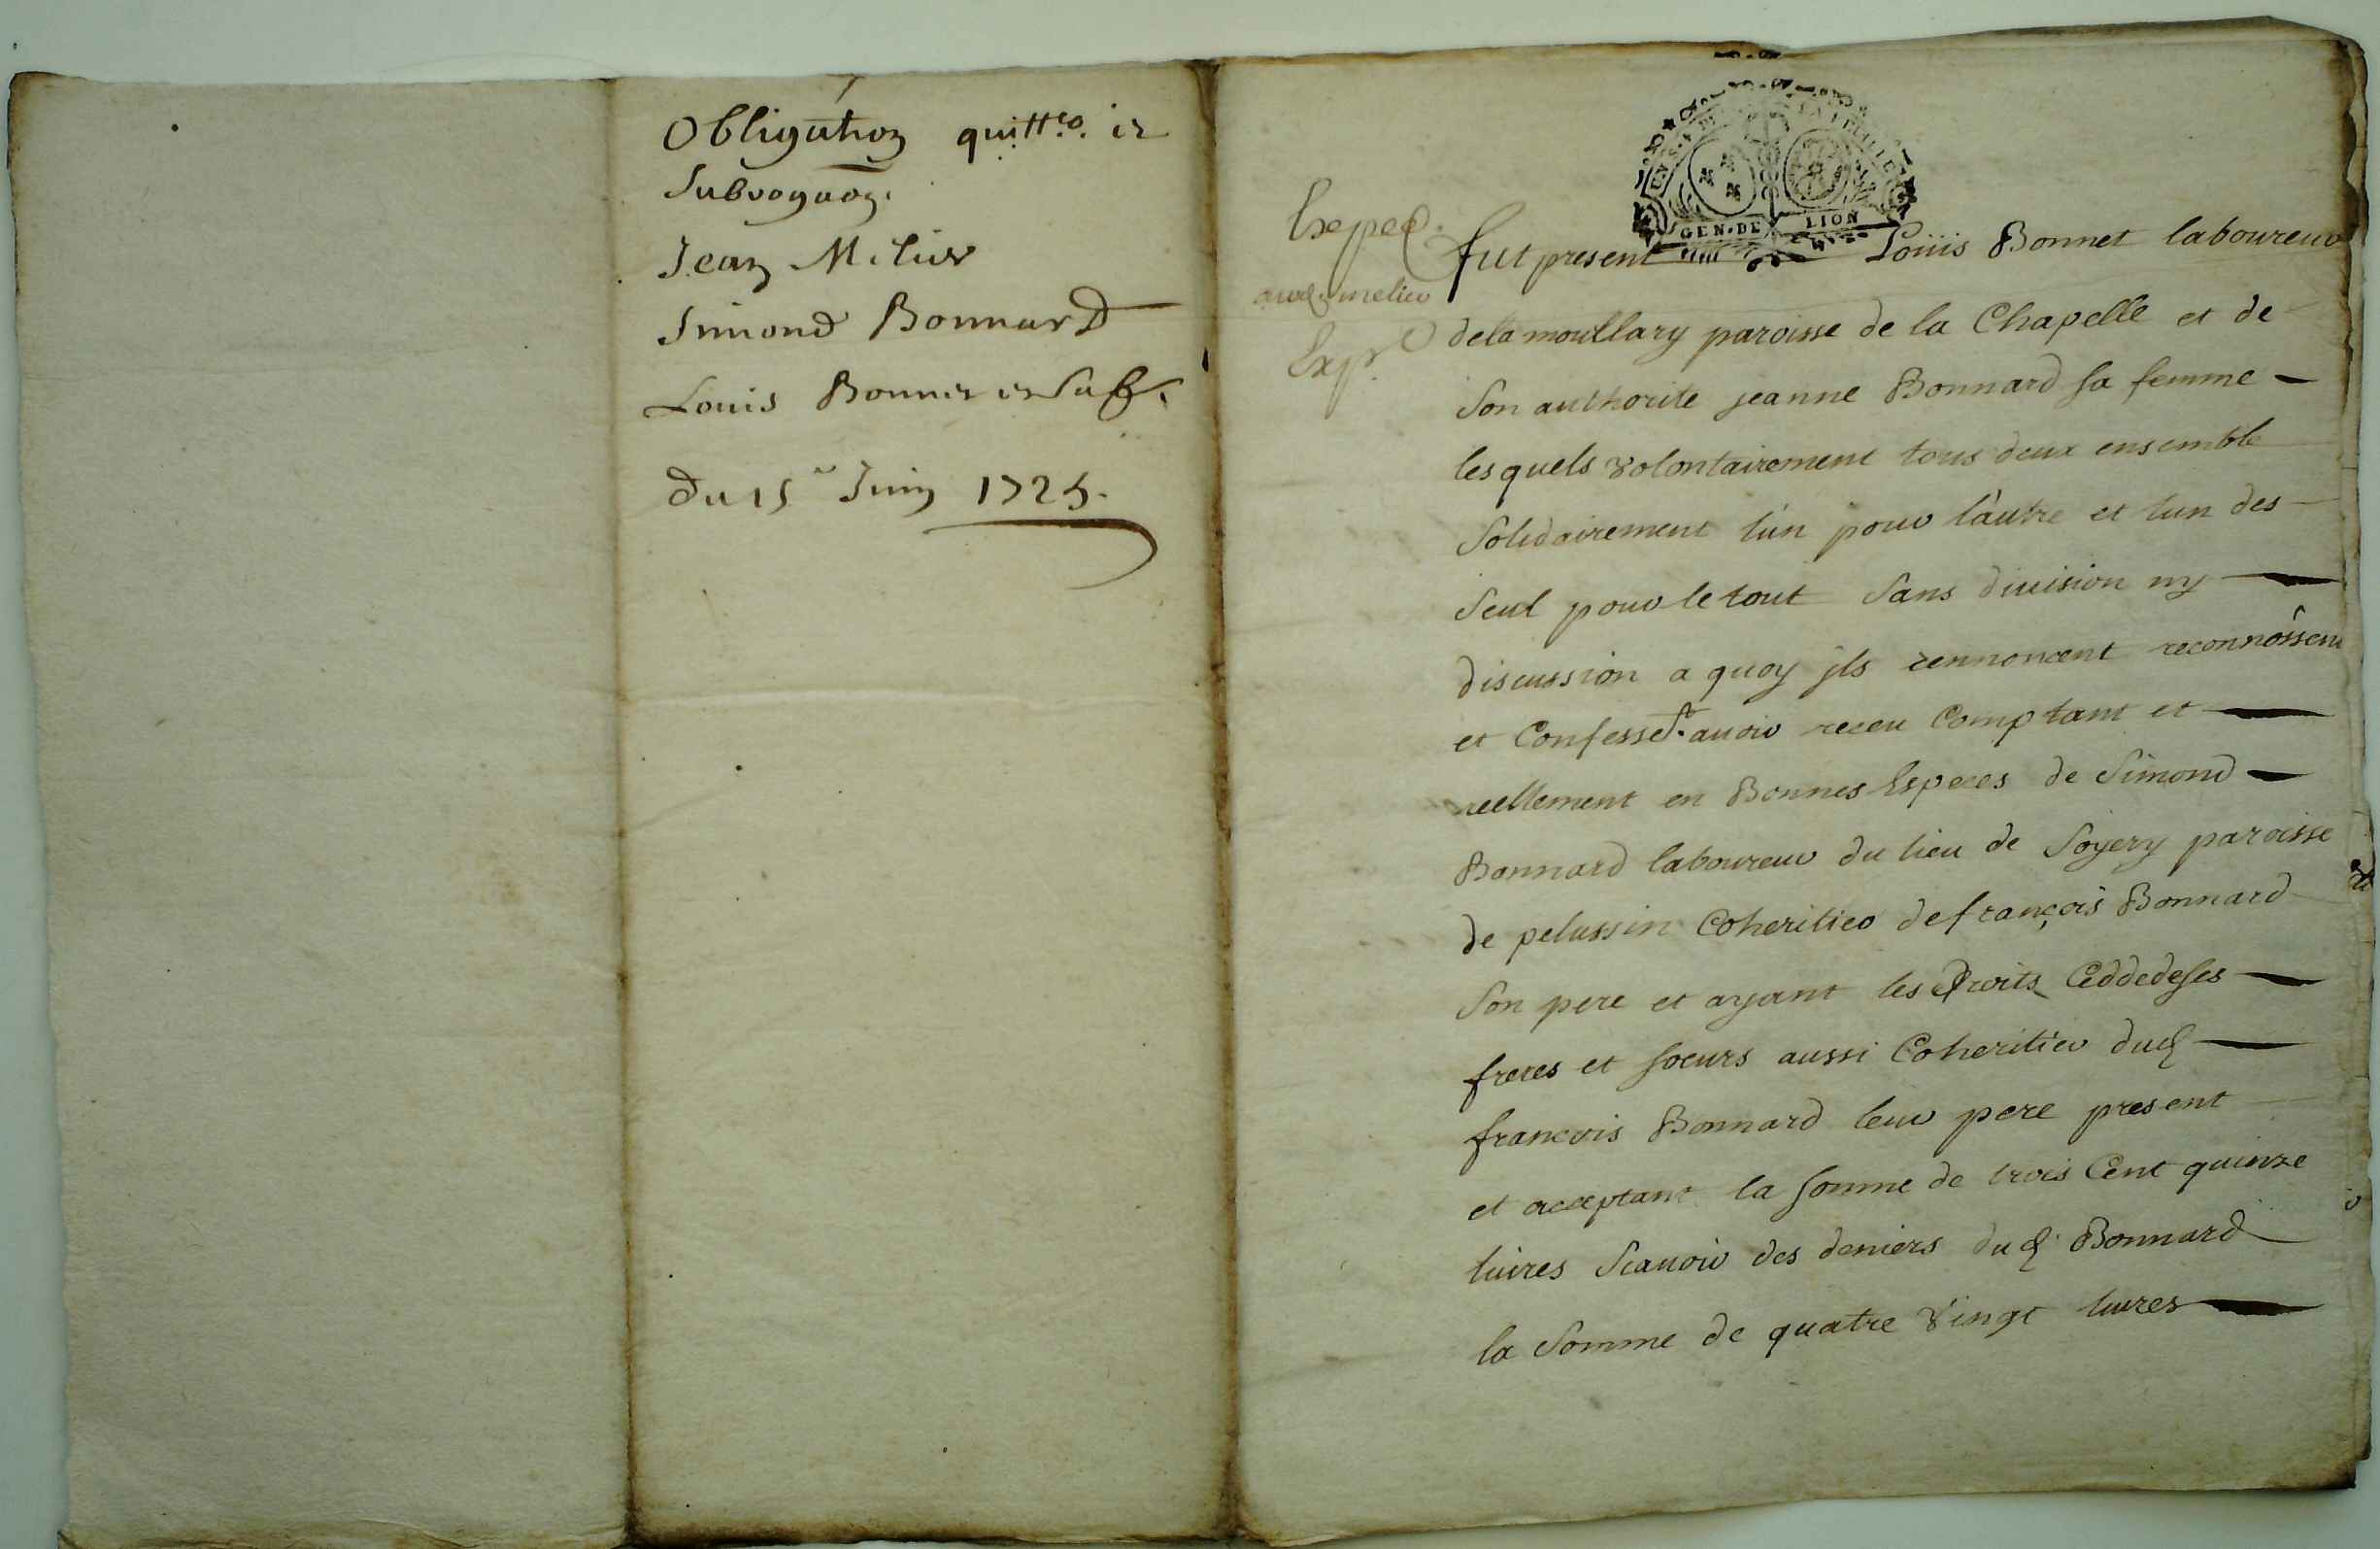 Obligation quitt.ce et
Subrogaon.
Jean Melier
Simond Bonnard
Louis Bonnet et Sa fe.
du 15e Juin 1725.
GEN·DE LION
Exped.
aud. melier
Exp.
fut present Loüis Bonnet laboureur
de la moullary paroisse de la Chapelle et de
Son authorité jeanne Bonnard sa femme
lesquels volontairement tous deux ensemble
Solidairement l'un pour l'autre et lun des
Seul pour le tout Sans division ny
discussion a quoy jls rennoncent reconnoissent
et Confesset. auoir receu Comptant et
reellement en Bonnes Especes de Simond
Bonnard laboureur du lieu de Soyery paroisse
de pelussin Coheritier de françois Bonnard
Son pere et ayant les Droits Ceddé de ses
freres et soeurs aussi Coheritier dud
francois Bonnard leur pere present
et acceptant la somme de trois Cent quinze
liures Scauoir des deniers dud. Bonnard
la Somme de quatre Vingt liures